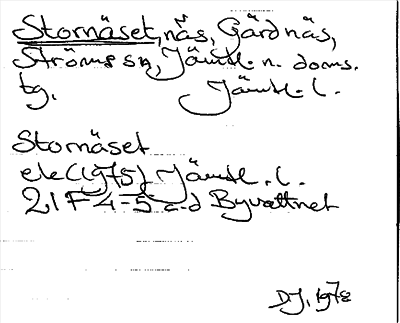 Stornäset, näs, Gärdnäs,
Ströms sn, Jämtl. n. doms.
tg. Jämtl. l.
Stornäset
ek (1975) Jämtl. l.
21F 4-5 c-d Byvattnet
DJ, 1978